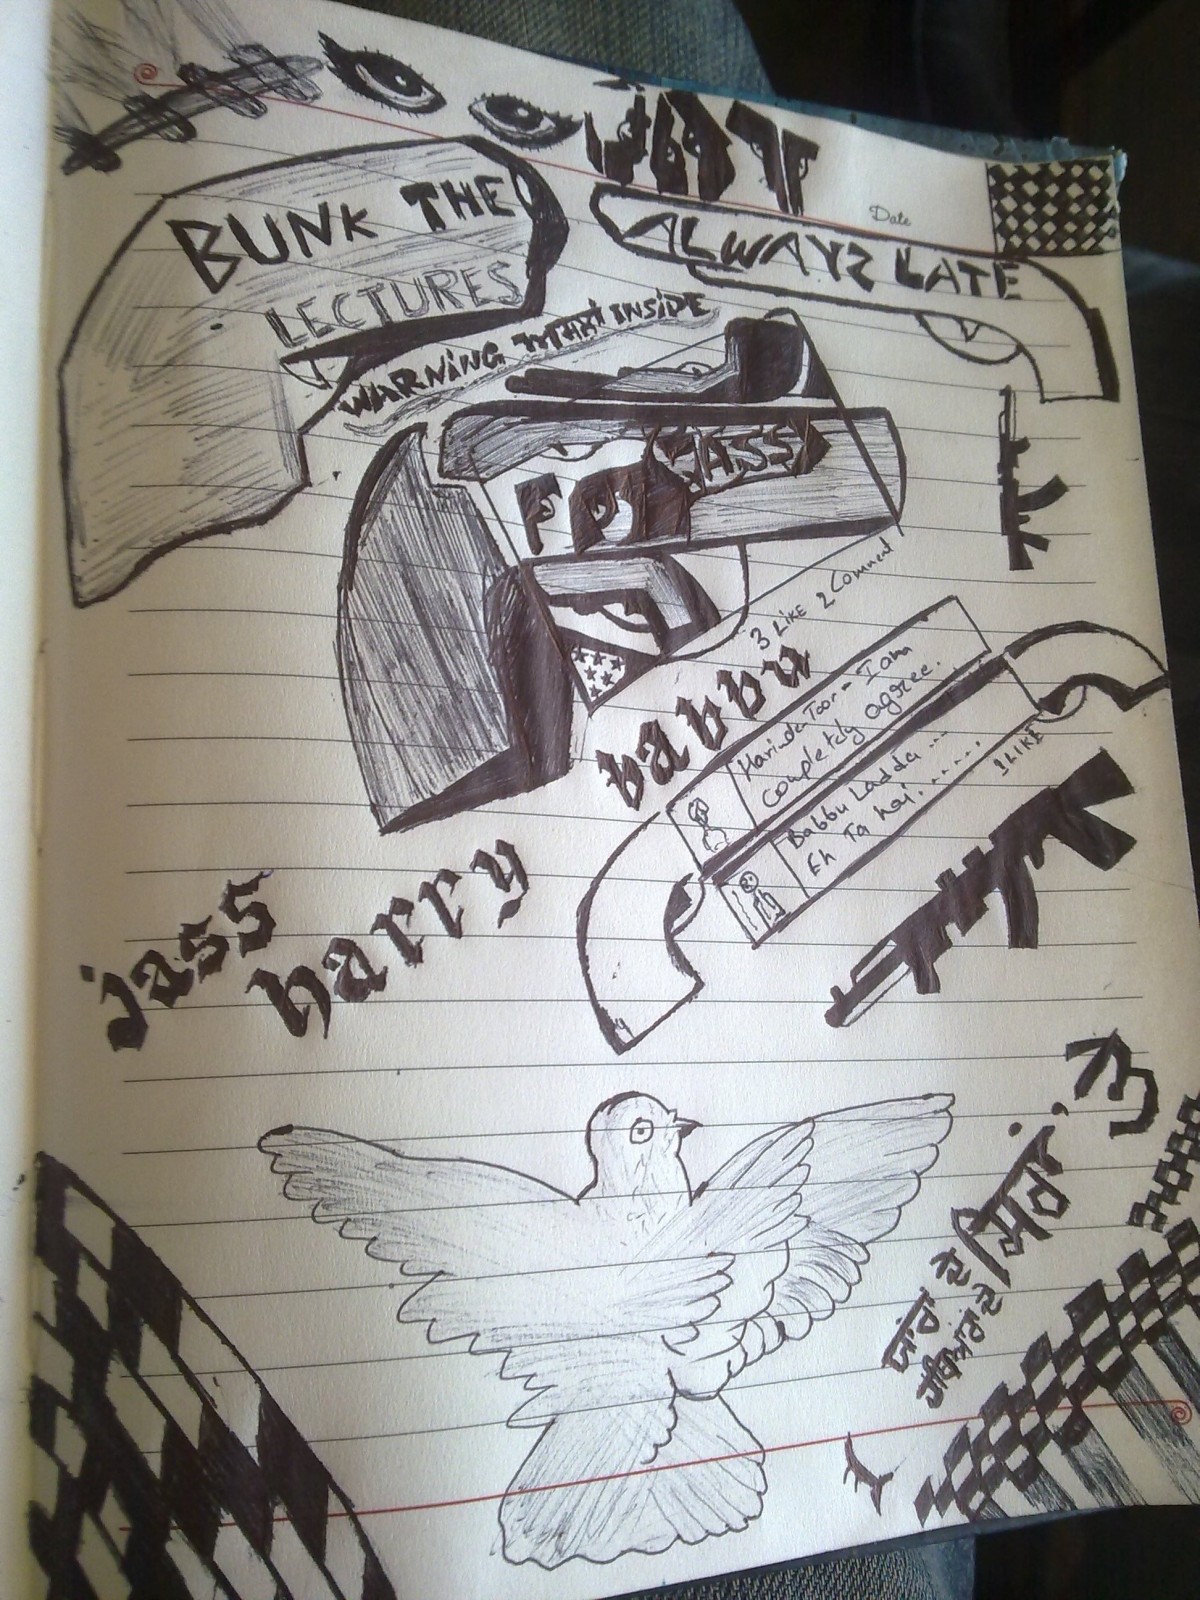 JATT
Date
BUNK THE
LECTURES
ALWAYZ LATE
WARNING WHAT INSIDE
JASS
3 LIKE 2 Comment
babbu
Harinder Toor - I am
completely agree.
Babbu Ladda ...
Eh Ta hai. ......
1 LIKE
jass
harry